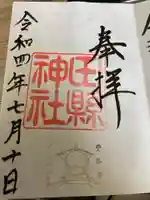 奉拝
田縣
神社
令和四年七月十日